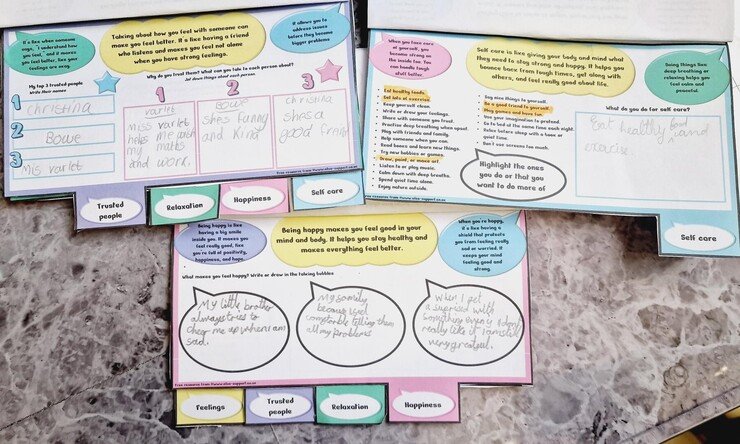 It's like when someone
says, "I understand how
you feel," and it makes
you feel better, like your
feelings are okay.
Talking about how you feel with someone can
make you feel better. It's like having a friend
who listens and makes you feel not alone
when you have strong feelings.
It allows you to
address issues
before they become
bigger problems
My top 3 trusted people
Write their names!
1
christina
2
Bowe
3
Mis varlet
Why do you trust them? What can you talk to each person about?
Jot down things about each person.
1
2
3
varlet
miss varlet
helps
me with
my maths
and work.
Bowe
shes funny
and kind
christina
shes a
good friend
Trusted
people
Relaxation
Happiness
Self care
When you take care
of yourself, you
become strong on
the inside too. You
can handle tough
stuff better.
Self care is like giving your body and mind what
they need to stay strong and happy. It helps you
bounce back from tough times, get along with
others, and feel really good about life.
Doing things like
deep breathing or
relaxing helps you
feel calm and
peaceful.
Eat healthy foods.
Get lots of exercise.
Keep yourself clean.
Write or draw your feelings.
Share with someone you trust.
Practise deep breathing when upset.
Play with friends and family.
Help someone when you can.
Read books and learn new things.
Try new hobbies or games.
Draw, paint, or make art.
Listen to or play music.
Calm down with deep breaths.
Spend quiet time alone.
Enjoy nature outside.
Say nice things to yourself.
Be a good friend to yourself.
Play games and have fun.
Use your imagination to pretend.
Go to bed at the same time each night.
Relax before sleep with a book or
quiet time.
Don't use screens too much.
Highlight the ones
you do or that you
want to do more of
What do you do for self care?
Eat healthy food and
exercise
Self care
Being happy is like
having a big smile
inside you. It makes you
feel really good, like
you're full of positivity,
happiness, and hope.
Being happy makes you feel good in your
mind and body. It helps you stay healthy and
makes everything feel better.
When you're happy,
it's like having a
shield that protects
you from feeling really
sad or worried. It
keeps your mind
feeling good and
strong.
What makes you feel happy? Write or draw in the talking bubbles
My little brother
always tries to
cheer me up when i am
sad.
My family
because i feel
comfortable telling them
all my problems
When I get
suprised with
something even if I dont
really like it I am still
very greatful.
Feelings
Trusted
people
Relaxation
Happiness